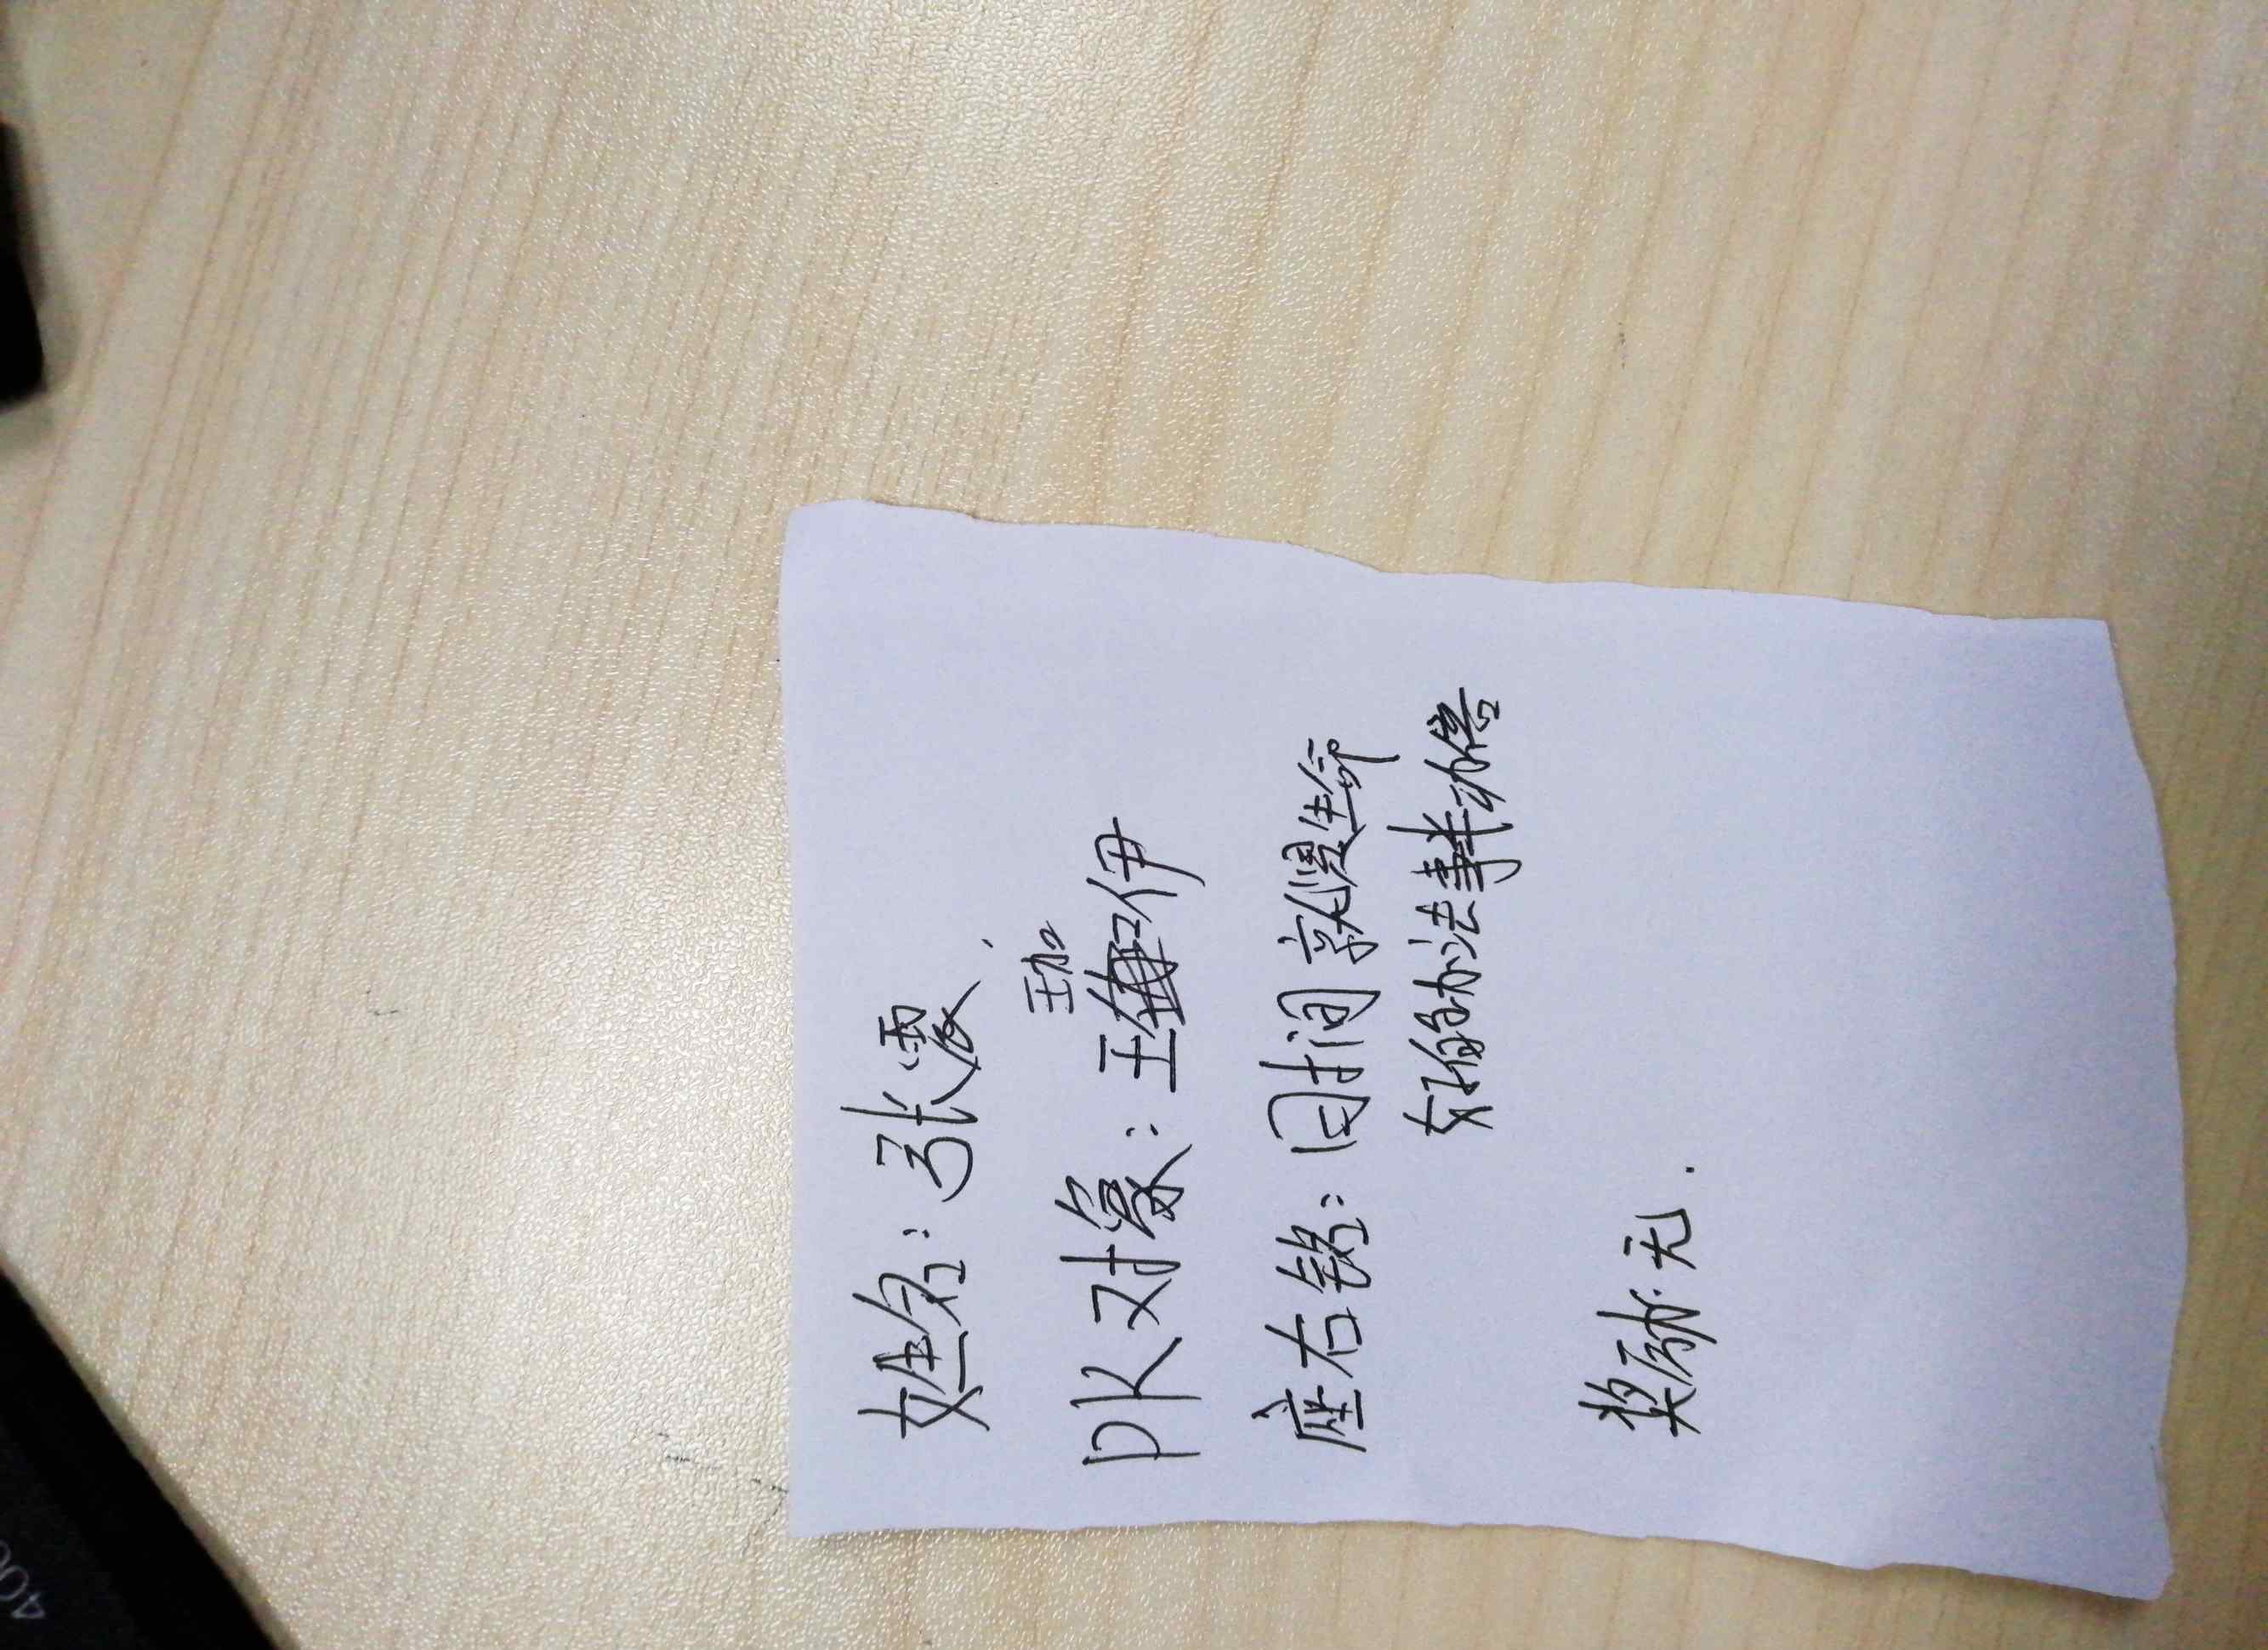 姓名:张霞.
珈
PK对象:王伊
座右铭:时间就是生命
好的办法事半功倍
奖励:无.
400